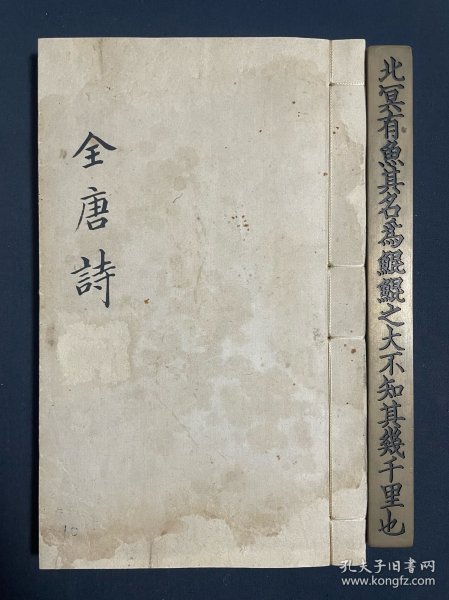 全唐詩
北冥有魚其名為鯤鯤之大不知其幾千里也
10
孔夫子旧书网
www.kongfz.com